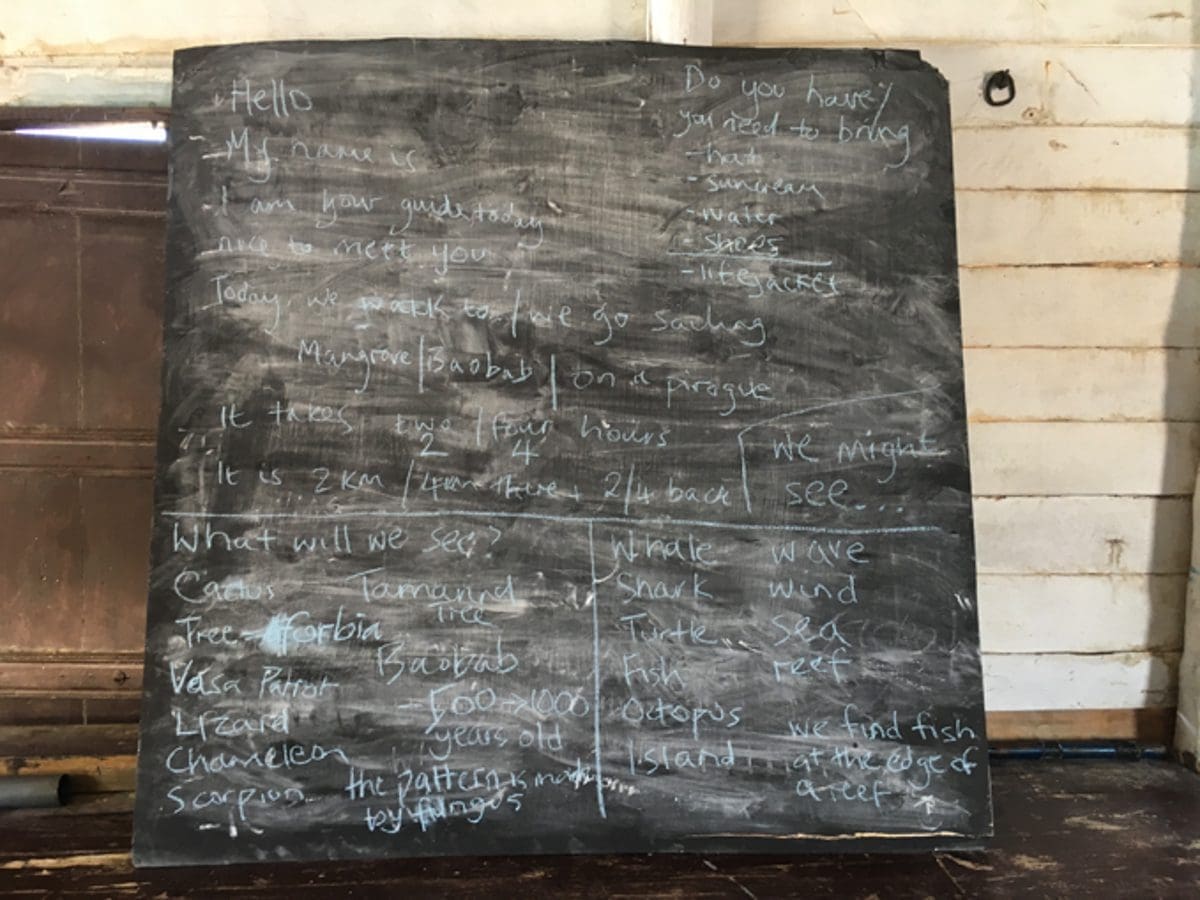 Hello
- My name is
- I am your guide today
nice to meet you
Today, we walk to / we go sailing
Mangrove | Baobab | on a pirogue
It takes two / four hours
2 4
It is 2 km / 4km there + 2/4 back
Do you have /
you need to bring
- hat
- suncream
- water
- shoes
- lifejacket
we might
see...
What will we see?
Cactus
Tree forbia
Vasa Parrot
Lizard
Chameleon
Scorpion
Tamarind
Tree
Baobab
- 500 → 1000
years old
the pattern is
by fungus
Whale
Shark
Turtle
Fish
Octopus
Island
wave
wind
sea
reef
we find fish
at the edge of
a reef